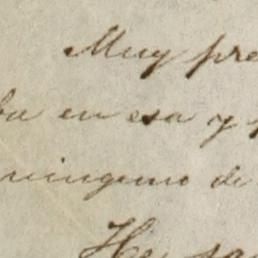 Muy pre
ba en esa y
ninguno de
He sa